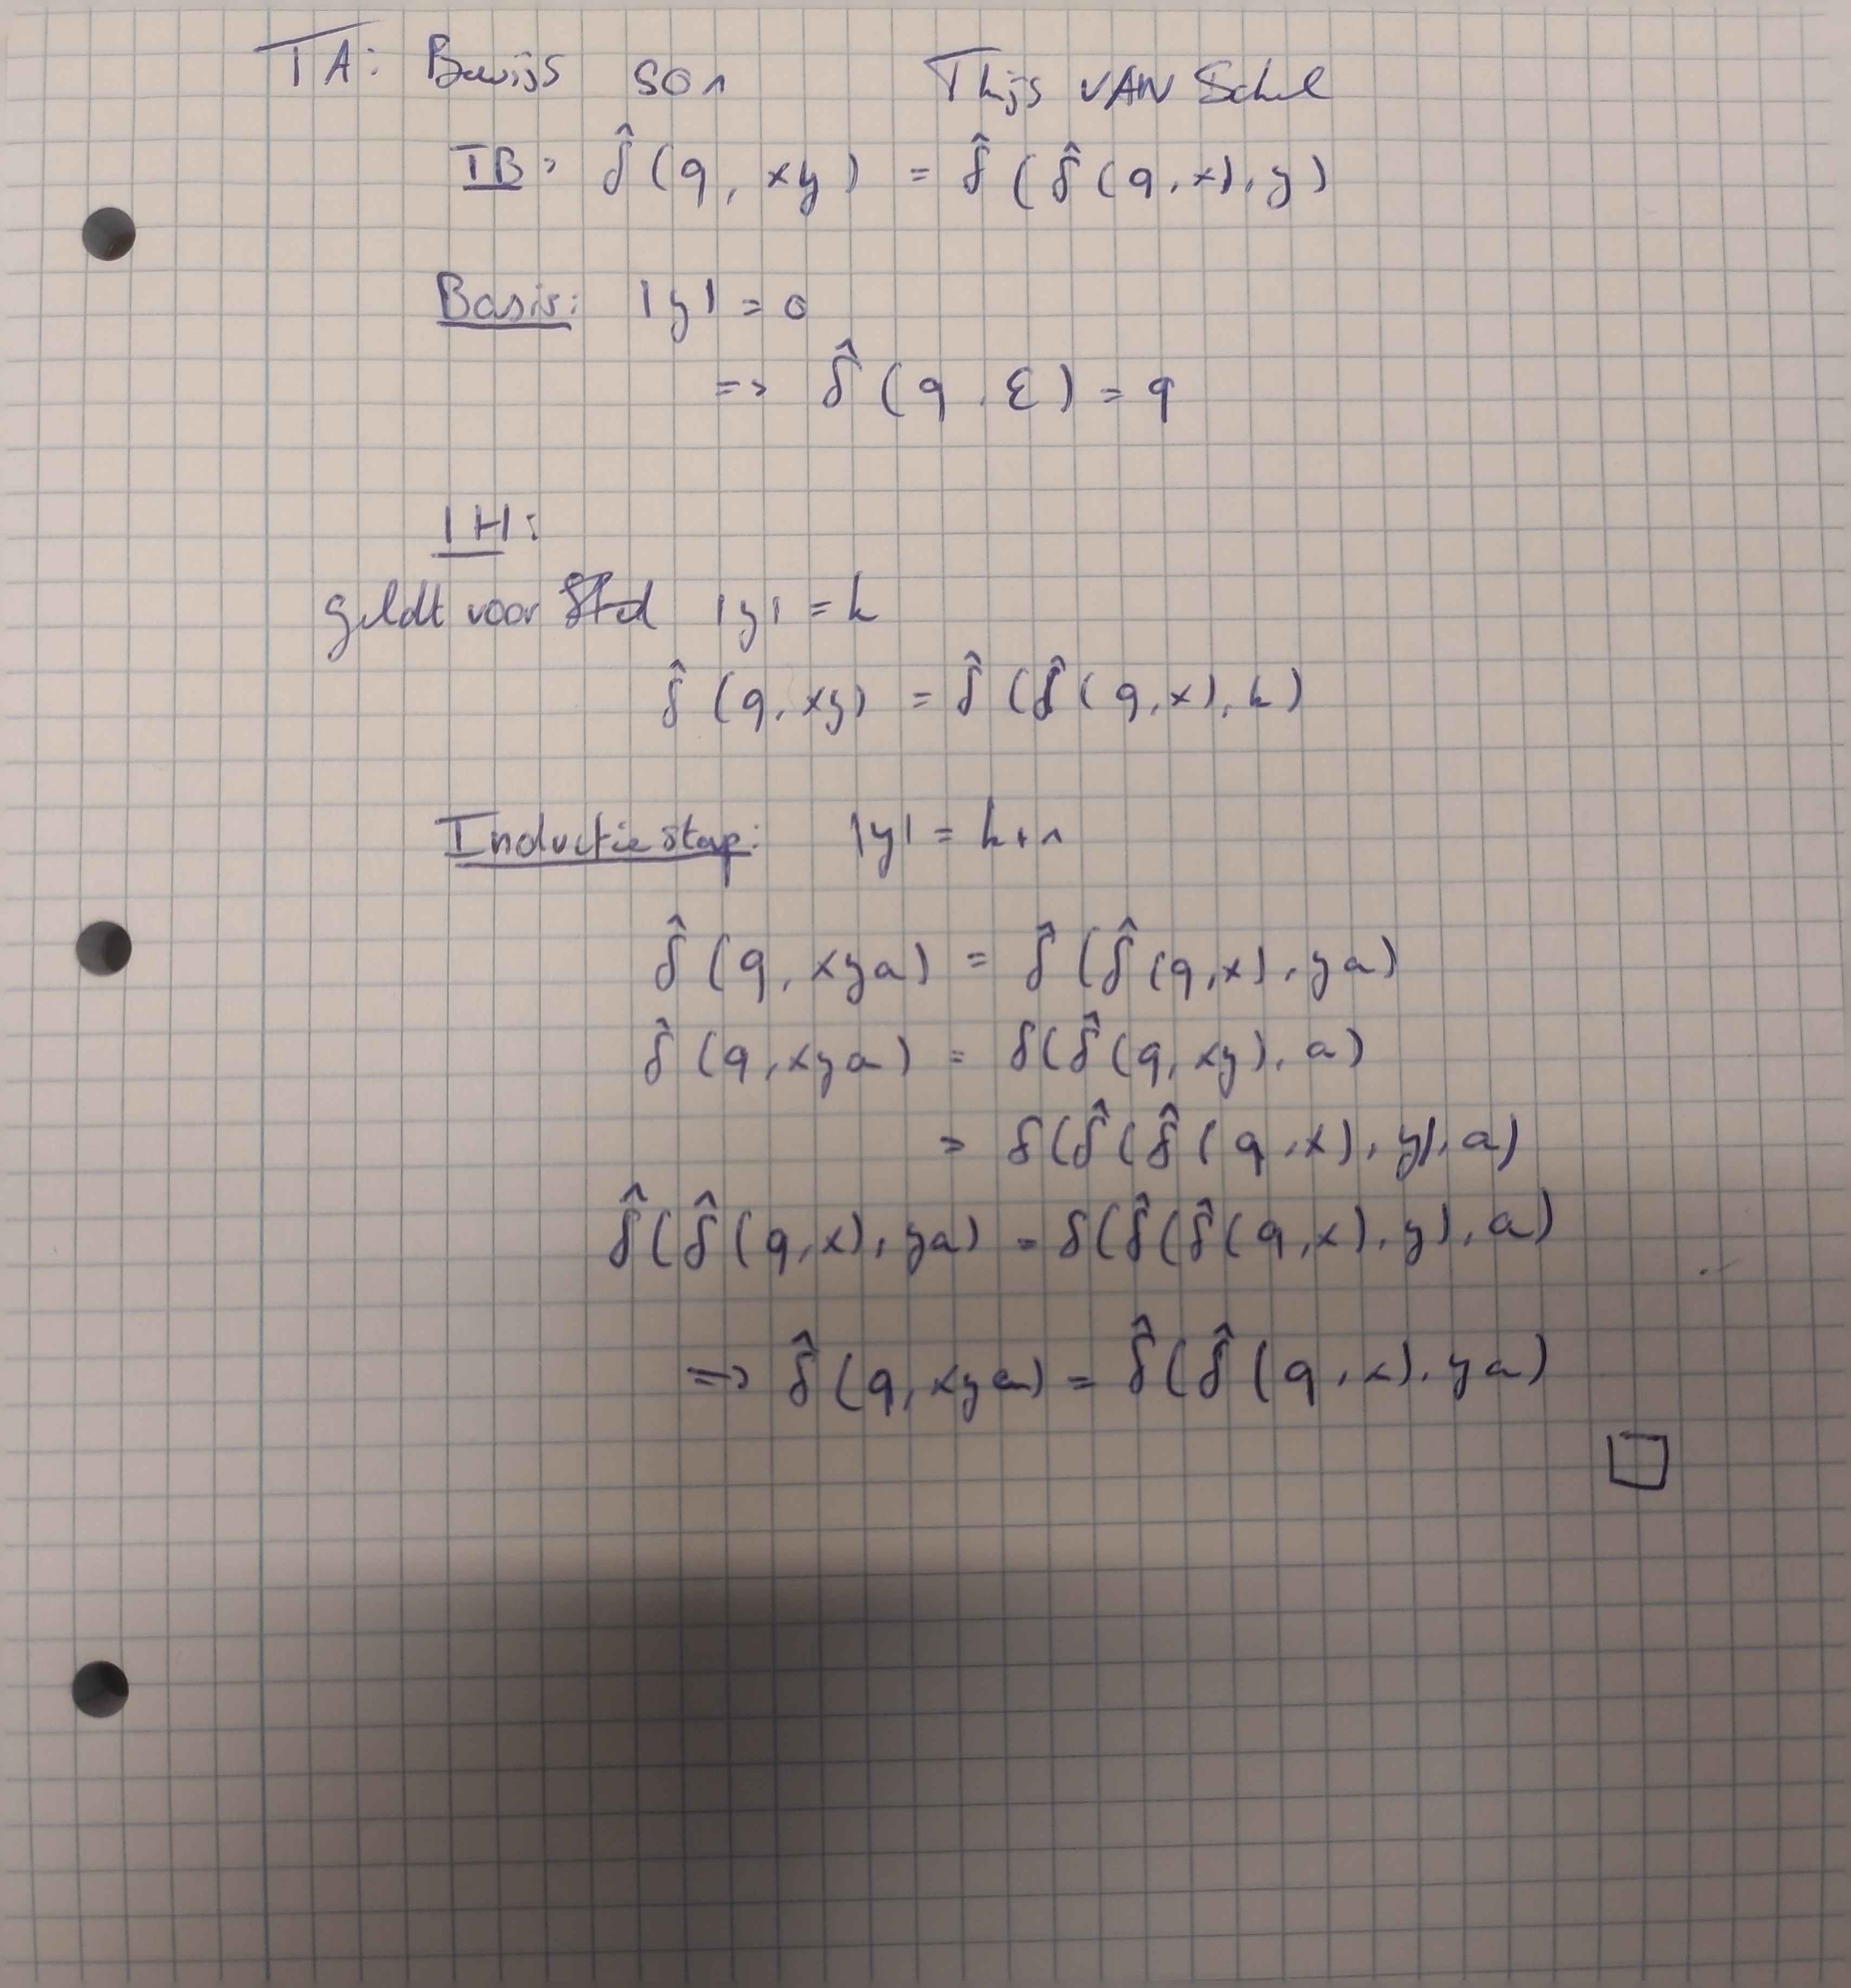 TA: Bewijs S01 Thijs VAN Schel
TB: δ̂(q, xy) = δ̂(δ̂(q,x),y)
Basis: |y| = 0
=> δ̂(q, ε) = q
IH:
geldt voor |y| = k
δ̂(q, xy) = δ̂(δ̂(q,x), k)
Inductiestap: |y| = k+1
δ̂(q, xya) = δ̂(δ̂(q,x), ya)
δ̂(q, xya) = δ(δ̂(q, xy), a)
= δ(δ̂(δ̂(q,x), y), a)
δ̂(δ̂(q,x), ya) = δ(δ̂(δ̂(q,x), y), a)
=> δ̂(q, xya) = δ̂(δ̂(q,x), ya)
□